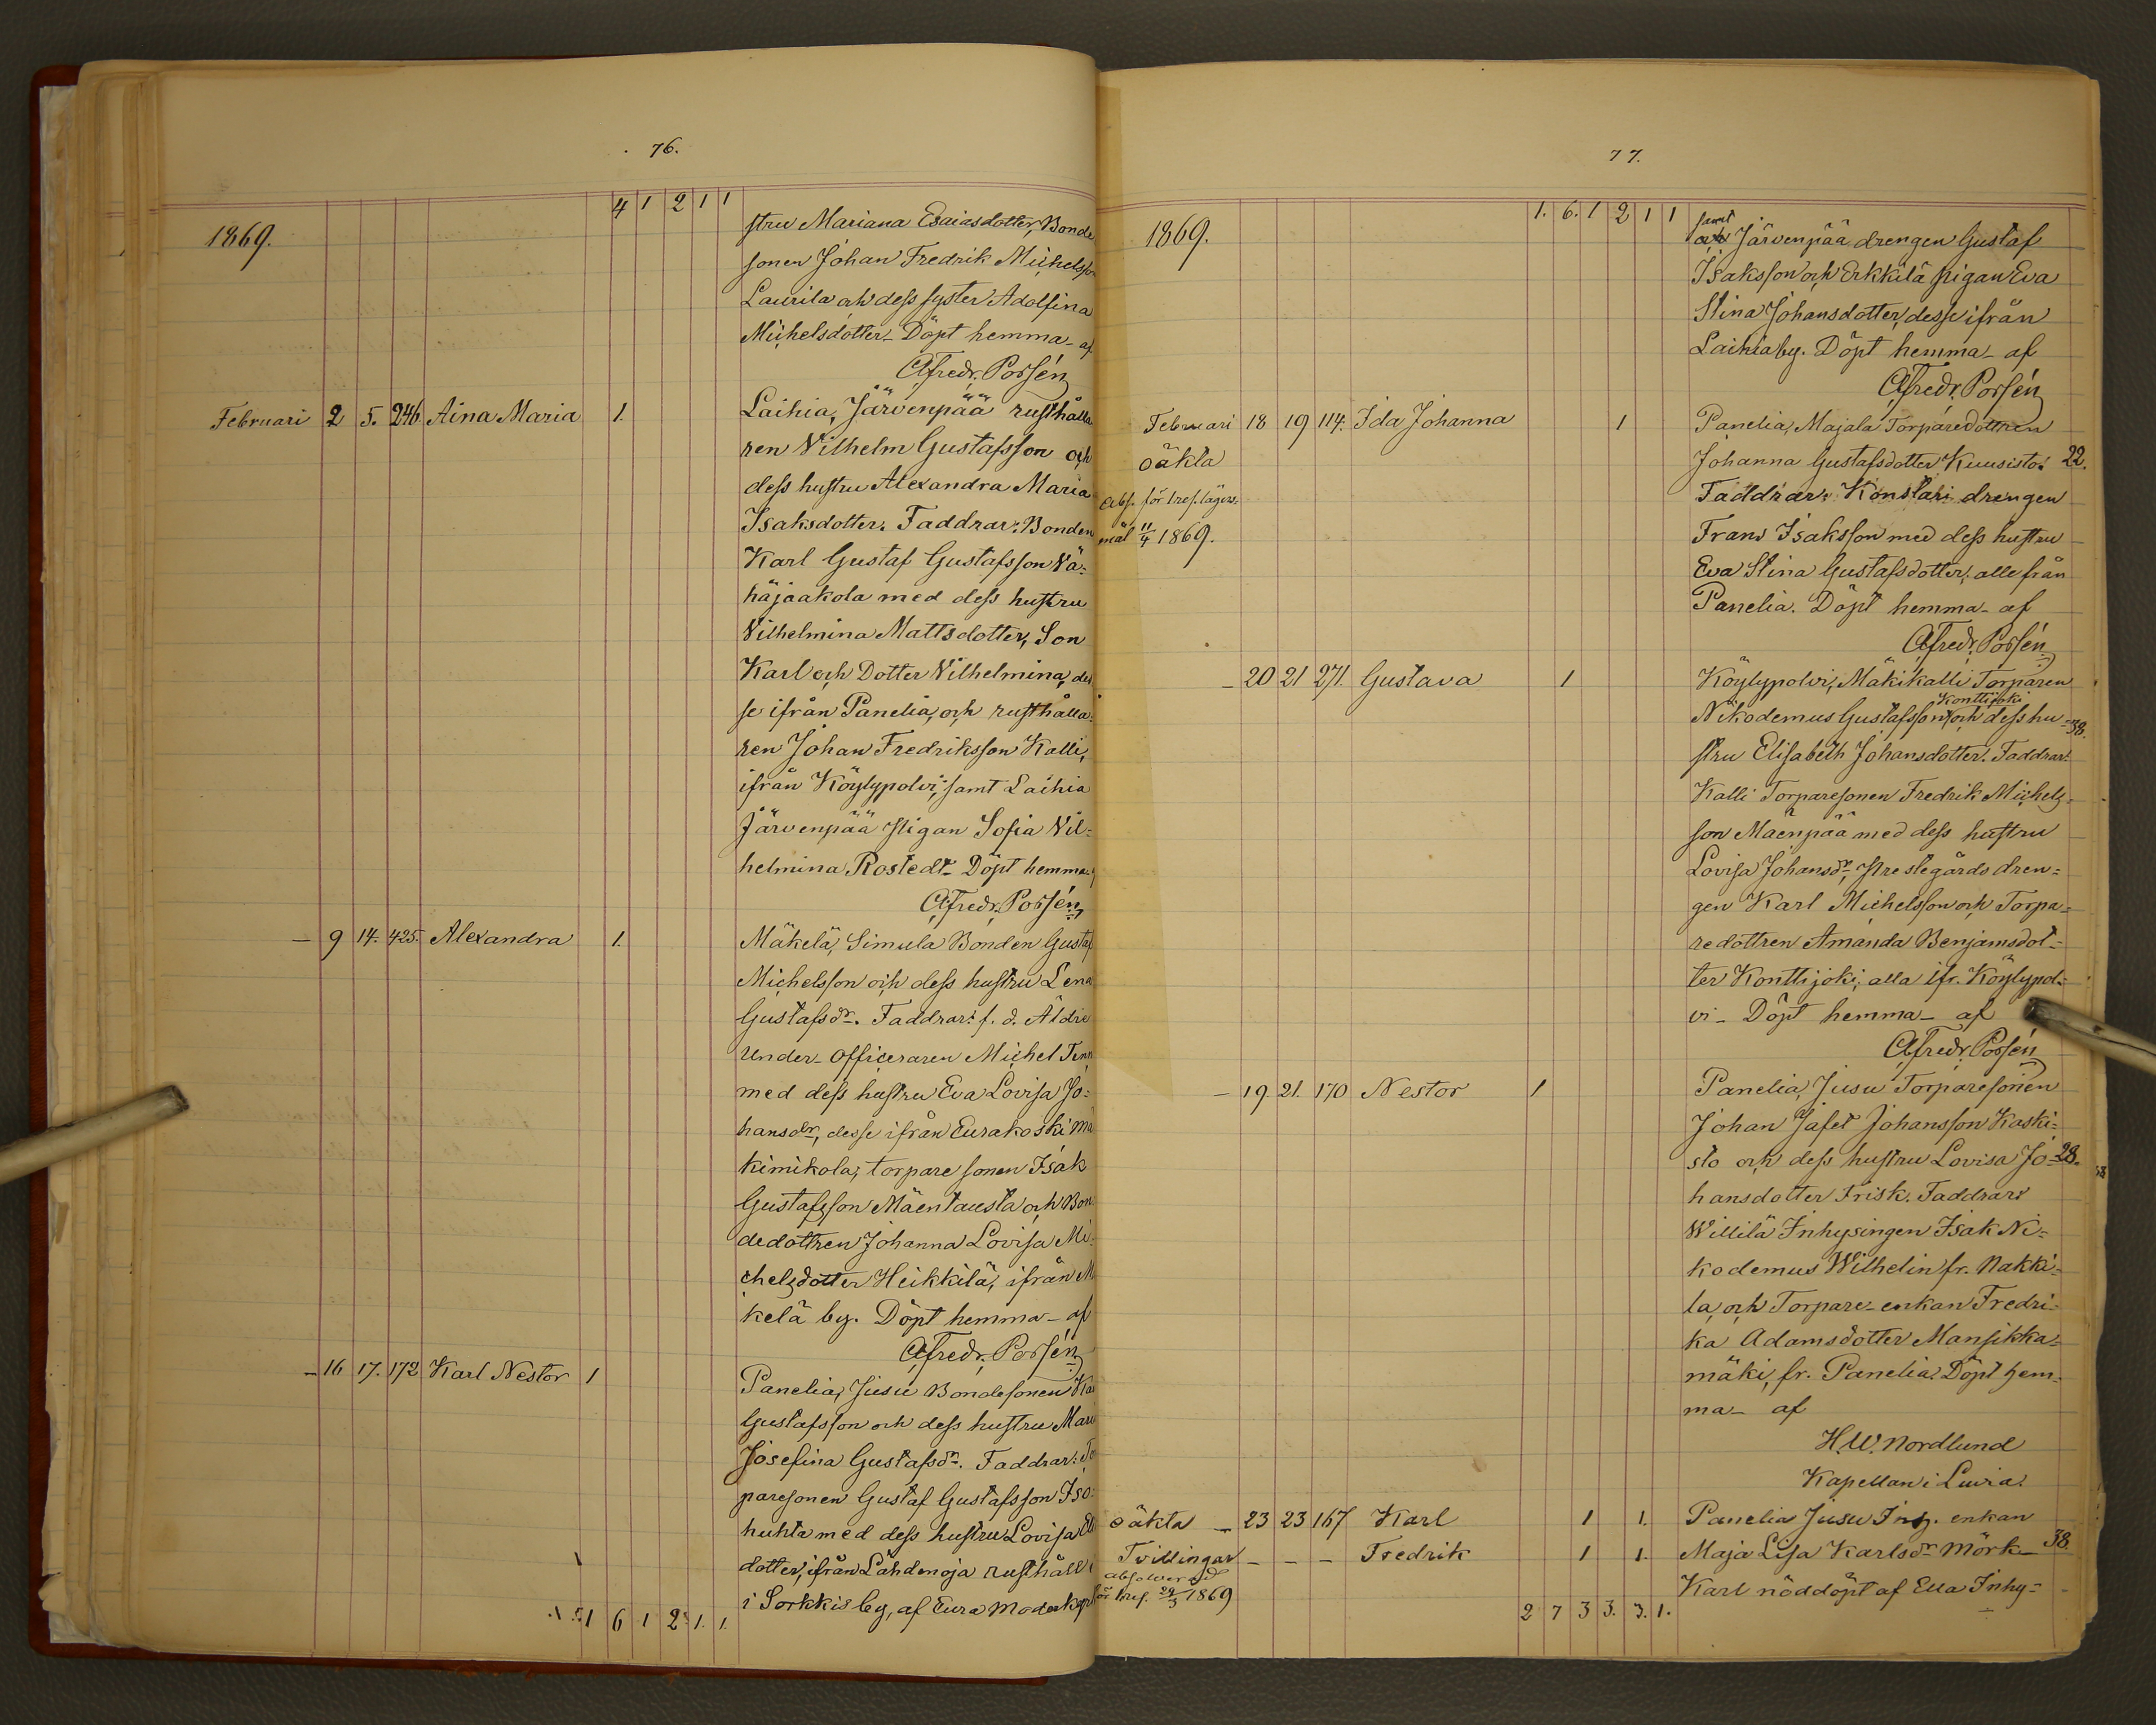 76.
4 1 2 1 1
1869.
stru Mariana Esaiasdotter, Bonde
sonen Johan Fredrik Michelsso
Laurila och dess syster Adolfina
Michelsdotter. Döpt hemma - af
Afredr. Possén
Februari 2 5. 246. Aina Maria 1. Laihia, Järvenpää rusthålla
ren Vilhelm Gustafsson och
dess hustru Alexandra Maria
Isaksdotter. Faddrar: Bonden
Karl Gustaf Gustafsson Vä=
häjaakola med dess hustru
Vilhelmina Mattsdotter, Son
Karl och Dotter Vilhelmina, des
se ifrån Panelia, och rusthålla=
ren Johan Fredriksson Kalli,
ifrån Köylypolvi, samt Laihia
Järvenpää pigan Sofia Vil=
helmina Rostedt - Döpt hemma
Afredr. Possén
— 9 14. 425. Alexandra 1. Mäkelä, Simula Bonden Gustaf
Michelsson och dess hustru Lena
Gustafsdr. Faddrar: f. d. Äldre
under-officeraren Michel Tenn
med dess hustru Eva Lovisa Jo=
hansdr, desse ifrån Eurakoski Mä
kimikola, torpare sonen Isak
Gustafsson Mäentausta och Bon
dedottren Johanna Lovisa Mi=
chelsdotter Heikkilä, ifrån M
kelä by. Döpt hemma - af
Afredr. Possén
— 16 17. 172 Karl Nestor 1 Panelia, Jusu Bondesonen Ka
Gustafsson och dess hustru Mari
Josefina Gustafsdr. Faddrar: To
paresonen Gustaf Gustafsson Iso=
huhta med dess hustru Lovisa
dotter, ifrån Lähdenoja rusthåll i
i Sorkkis by, af Eura Moderkyrk
1 6 1 2 1. 1.
77.
1. 6. 1 2 1 1
1869.
samt
Järvenpää drengen Gustaf
Isaksson och Erkkilä pigan Eva
Stina Johansdotter, desse ifrån
Laihia by. Döpt hemma - af
Afredr. Possén
Februari 18 19 114. Ida Johanna 1 Panelia, Majala Torparedottren
oäkta Johanna Gustafsdotter Kuusisto. 22.
Abs. för 1 res. lägers- Faddrar: Konstari drengen
mål 11/4 1869. Frans Isaksson med dess hustru
Eva Stina Gustafsdotter, alle från
Panelia. Döpt hemma - af
Afredr. Possén
— 20 21 271. Gustava 1 Köylypolvi, Mäkikalli Torparen
Konttijoki
Nikodemus Gustafsson och dess hu= 38.
stru Elisabeth Johansdotter. Faddrar:
Kalli Torparesonen Fredrik Michels=
son Mäenpää med dess hustru
Lovisa Johansdr, Prestegårds dren=
gen Karl Michelsson och Torpa=
redottren Amanda Benjamsdot=
ter Konttijoki, alla ifr. Köylypol=
vi - Döpt hemma - af
Afredr. Possén
— 19. 21. 170 Nestor 1 Panelia, Jusu Torparesonen
Johan Jafet Johansson Kaski=
sto och dess hustru Lovisa Jo= 28.
hansdotter Frisk. Faddrar:
Willilä Inhysingen Isak Ni=
kodemus Wilhelin fr. Nakki=
la, och Torpare-enkan Fredri=
ka Adamsdotter Mansikka=
mäki, fr. Panelia. Döpt hem=
ma - af
H.W. Nordlund
Kapellan i Luvia.
oäkta — 23 23 167 Karl 1 1. Panelia Jusu Inh. enkan
Tvillingar — — — Fredrik 1 1. Maja Lisa Karlsdr Mörk 38.
absolverad
för 1 res. 29/3 1869 Karl nöddöpt af Ella Inhy=
2 7 3 3. 3. 1.